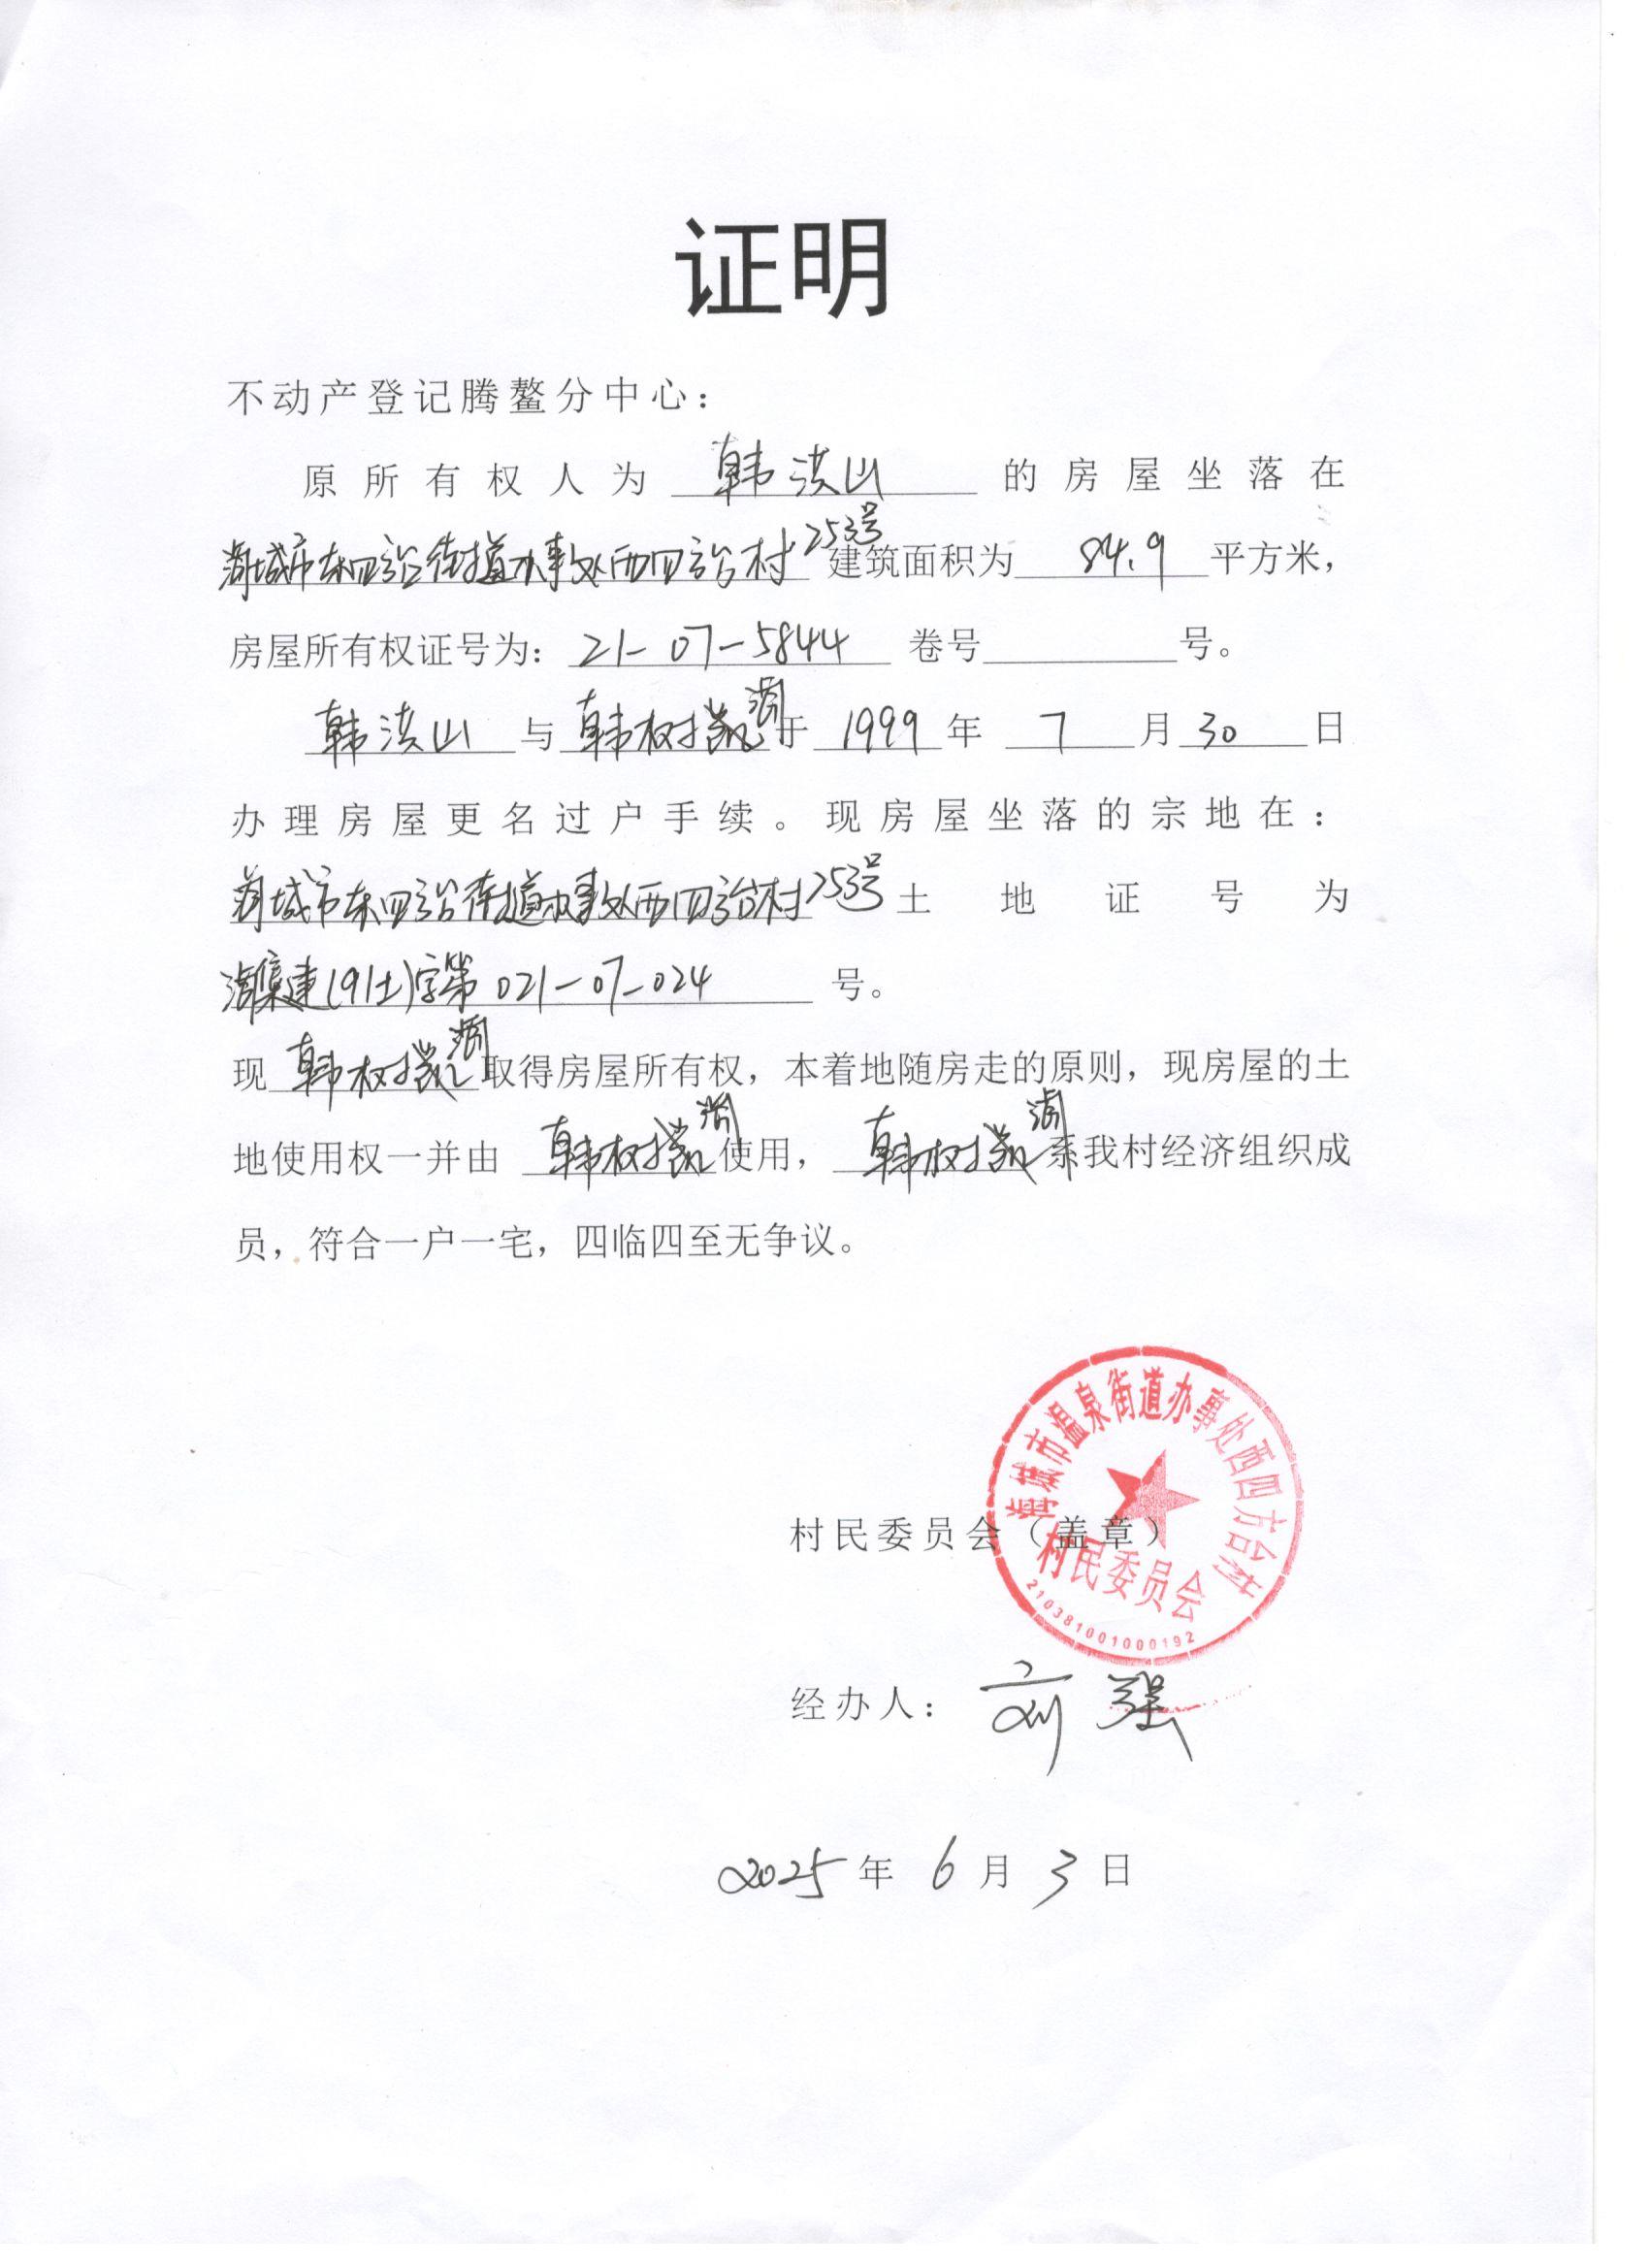 证明
不动产登记腾鳌分中心：
原所有权人为 韩洪山 的房屋坐落在
海城市东四方台街道办事处西四方台村253号 建筑面积为 84.9 平方米，
房屋所有权证号为： 21-07-5844 卷号 号。
韩洪山 与 韩树 于 1999 年 7 月 30 日
办理房屋更名过户手续。现房屋坐落的宗地在：
海城市东四方台街道办事处西四方台村253号 土地证号为
海集建(91土)字第 021-07-024 号。
现 韩树 取得房屋所有权，本着地随房走的原则，现房屋的土
地使用权一并由 韩树 使用， 韩树 系我村经济组织成
员，符合一户一宅，四临四至无争议。
海城市温泉街道办事处西四方台村
村民委员会（盖章）
村民委员会
210381001000192
经办人： 刘强
2025 年 6 月 3 日